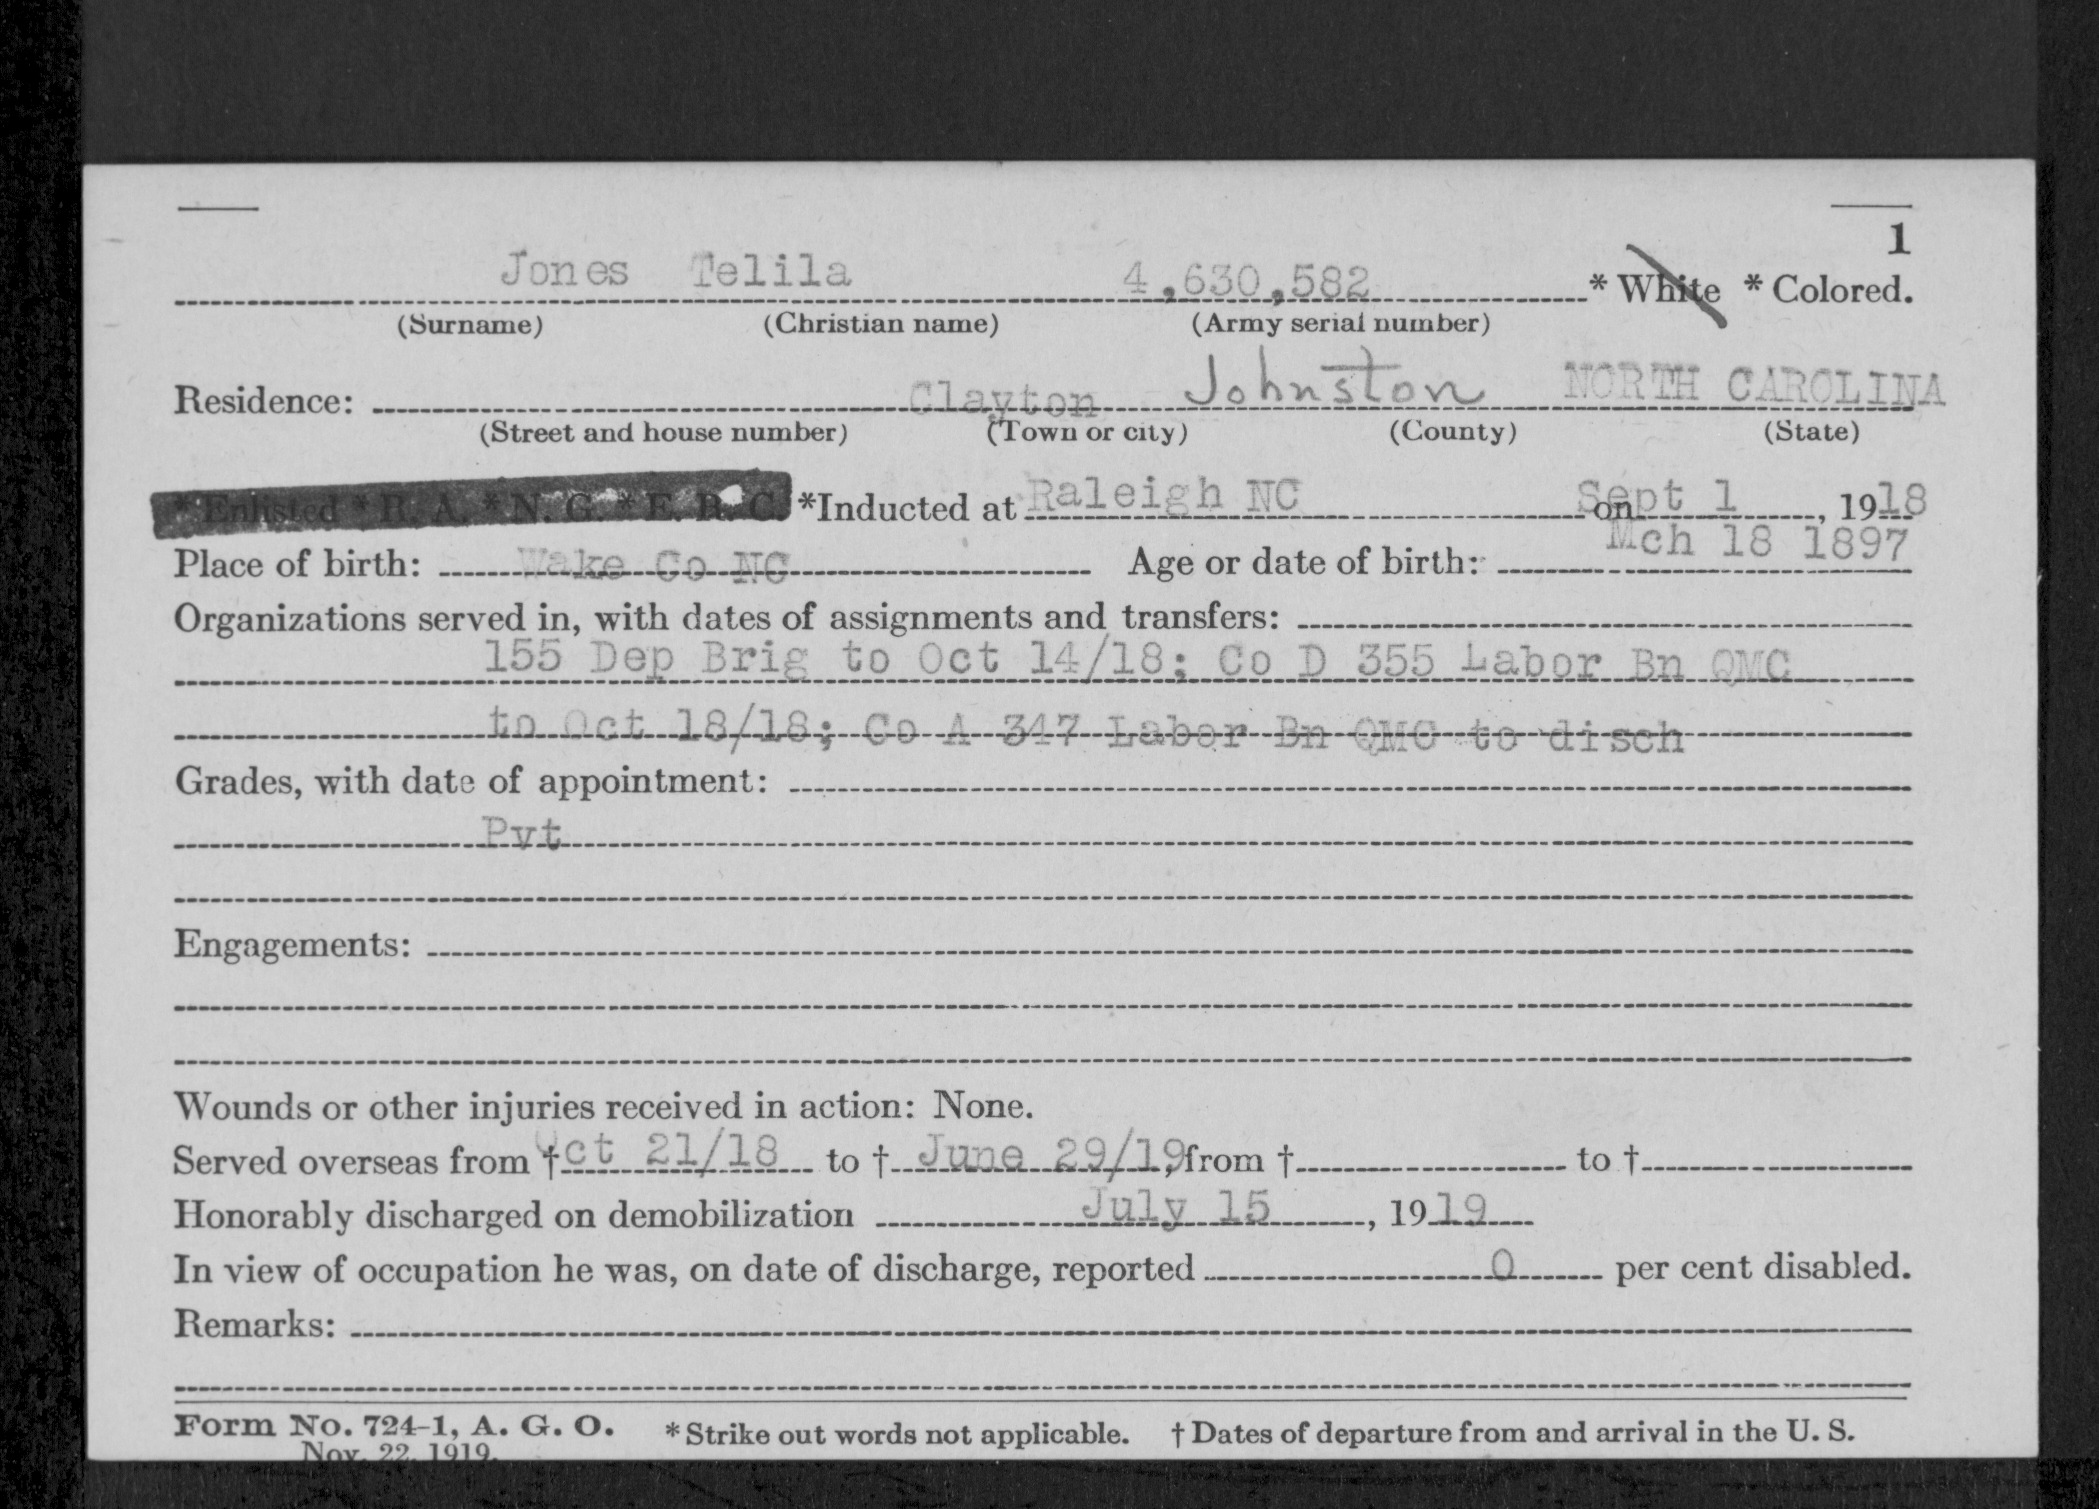 1
Jones Telila 4,630,582 * White * Colored.
(Surname) (Christian name) (Army serial number)
Residence: Clayton Johnston NORTH CAROLINA
(Street and house number) (Town or city) (County) (State)
* Enlisted * R. A. * N. G. * E. R. C. *Inducted at Raleigh NC on Sept 1, 1918
Place of birth: Wake Co NC Age or date of birth: Mch 18 1897
Organizations served in, with dates of assignments and transfers:
155 Dep Brig to Oct 14/18; Co D 355 Labor Bn QMC
to Oct 18/18; Co A 347 Labor Bn QMC to disch
Grades, with date of appointment:
Pvt
Engagements:
Wounds or other injuries received in action: None.
Served overseas from † Oct 21/18 to † June 29/19, from † to †
Honorably discharged on demobilization July 15, 1919
In view of occupation he was, on date of discharge, reported 0 per cent disabled.
Remarks:
Form No. 724-1, A. G. O. * Strike out words not applicable. † Dates of departure from and arrival in the U. S.
Nov. 22, 1919.